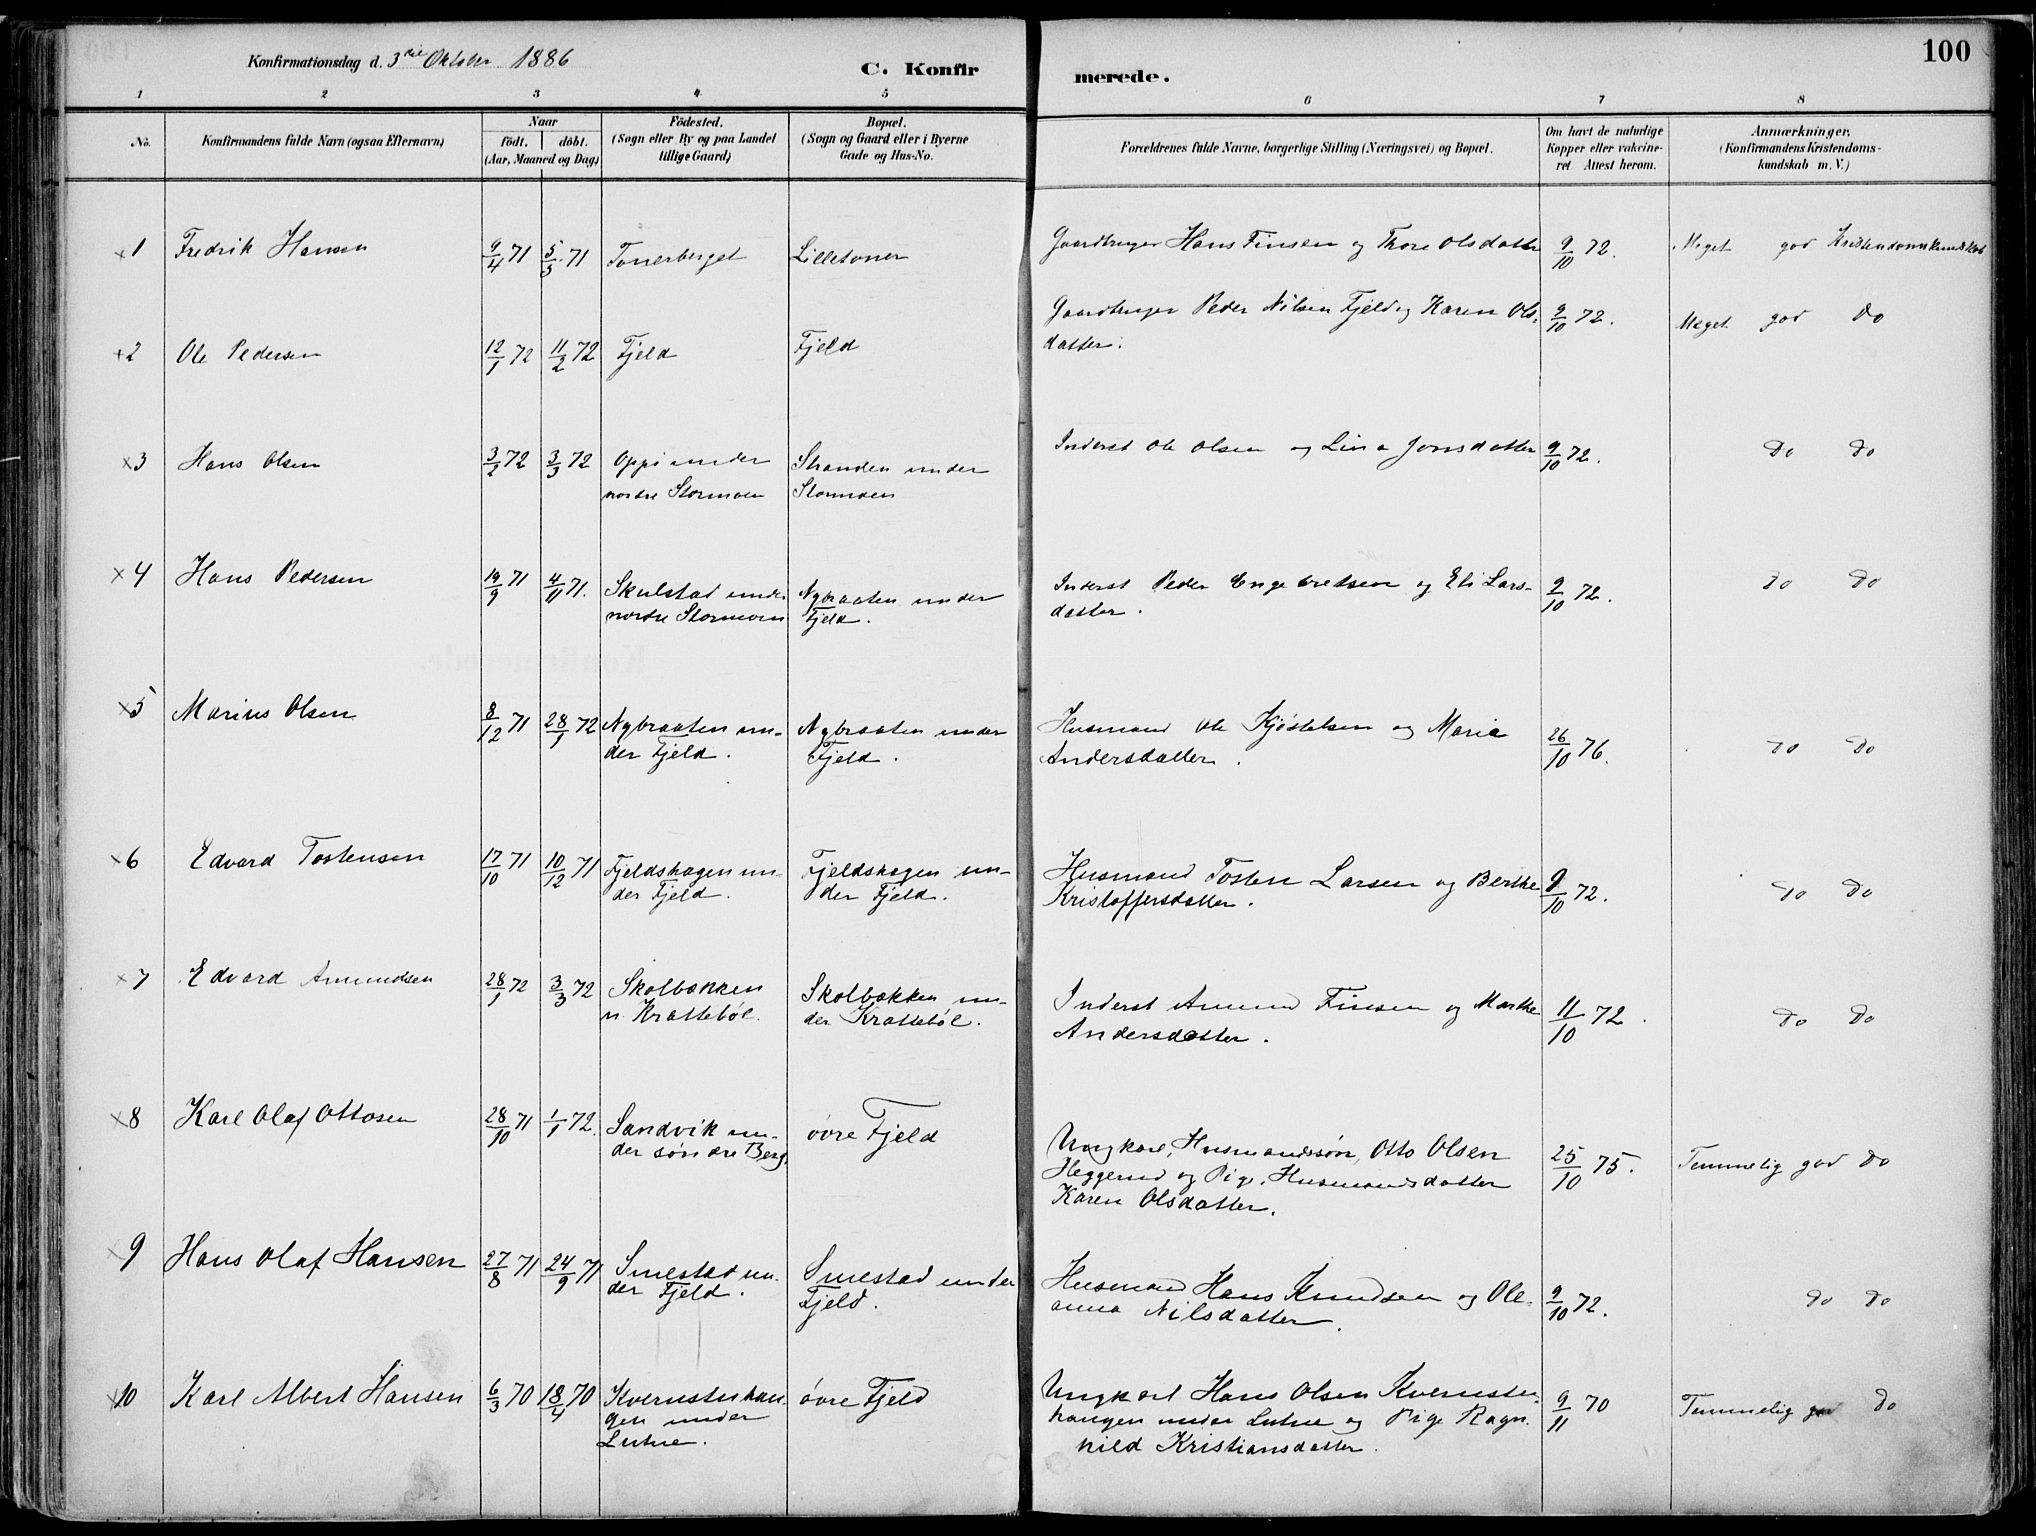 Konfirmationsdag d. 3die Oktober 1886
C. Konfirmerede.
100
1 2 3 4 5 6 7 8
No.
Konfirmandens fulde Navn (ogsaa Efternavn)
Naar
födt. döbt.
(Aar, Maaned og Dag)
Födested.
(Sogn eller By og paa Landet
tillige Gaard)
Bopæl.
(Sogn og Gaard eller i Byerne
Gade og Hus-No.
Forældrenes fulde Navne, borgerlige Stilling (Næringsvei) og Bopæl.
Om havt de naturlige
Kopper eller vakcine-
ret Attest herom.
Anmærkninger.
(Konfirmandens Kristendoms-
kundskab m. V.)
x1 Fredrik Hansen 9/4 71 5/5 71 Tonerberget Lilletoner Gaardbruger Hans Finsen og Thore Olsdatter 9/10 72. Meget god Kristendomskundskab
x2 Ole Pedersen 12/1 72 11/2 72 Fjeld Fjeld Gaardbruger Peder Nilsen Fjeld og Karen Ols-
datter. 9/10 72. Meget god Do
x3 Hans Olsen 3/2 72 3/3 72 Oppi under
nordre Stormoen Stranden under
Stormoen Inderst Ole Olsen og Lina Jonsdatter 9/10 72. Do Do
x4 Hans Pedersen 19/9 71 4/11 71. Skulstad under
nordre Stormoen Nybraaten under
Fjeld. Inderst Peder Engebretsen og Eli Lars-
datter. 9/10 72. Do Do
x5 Marius Olsen 8/12 71 28/1 72 Nybraaten un-
der Fjeld. Nybraaten under
Fjeld. Husmand Ole Kjöstelsen og Maria
Andersdatter. 26/10 76. Do Do
x6 Edvard Tostensen 17/10 71 10/12 71 Fjeldshagen un-
der Fjeld. Fjeldshagen un-
der Fjeld. Husmand Tosten Larsen og Berthe
Kristoffersdatter. 9/10 72. Do Do
x7 Edvard Amundsen 28/1 72 3/3 72 Skolbækken
u. Kratteböl. Skolbækken un-
der Kratteböl. Inderst Amund Finsen og Marthe
Andersdatter. 11/10 72. Do Do
x8 Karl Olaf Ottosen 28/10 71 1/1 72. Sandvik un-
der söndre Berg. övre Fjeld Ungkarl, Husmandssön, Otto Olsen
Heggerud og Pige, Husmandsdatter
Karen Olsdatter. 25/10 75. Temmelig god Do
x9 Hans Olaf Hansen 27/8 71 24/9 71 Smestad un-
der Fjeld. Smestad under
Fjeld. Husmand Hans Knudsen og Ole-
anna Nilsdatter. 9/10 72. Do Do
x10 Karl Albert Hansen 6/3 70 18/4 70 Kvernstuhau-
gen under
Lutue. övre Fjeld Ungkarl Hans Olsen Kvernstu-
haugen under Lutue og Pige Ragn-
hild Kristiansdatter. 9/11 70 Temmelig god Do